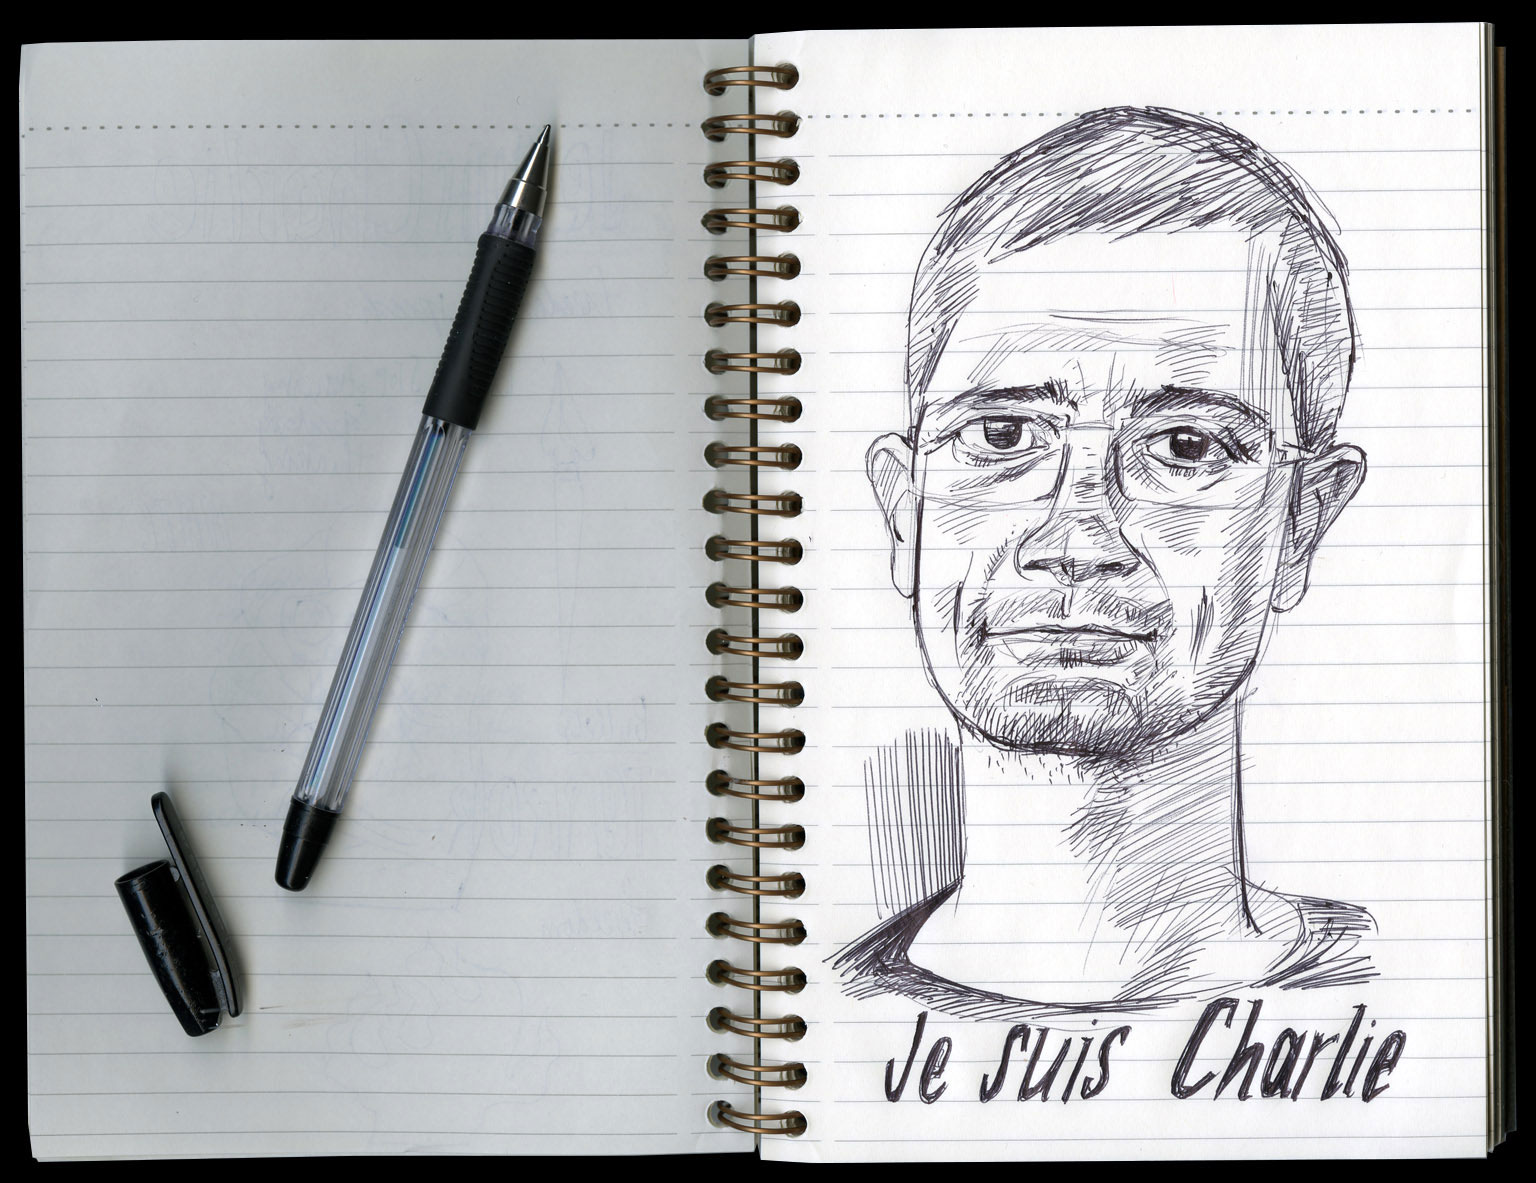 Je suis Charlie